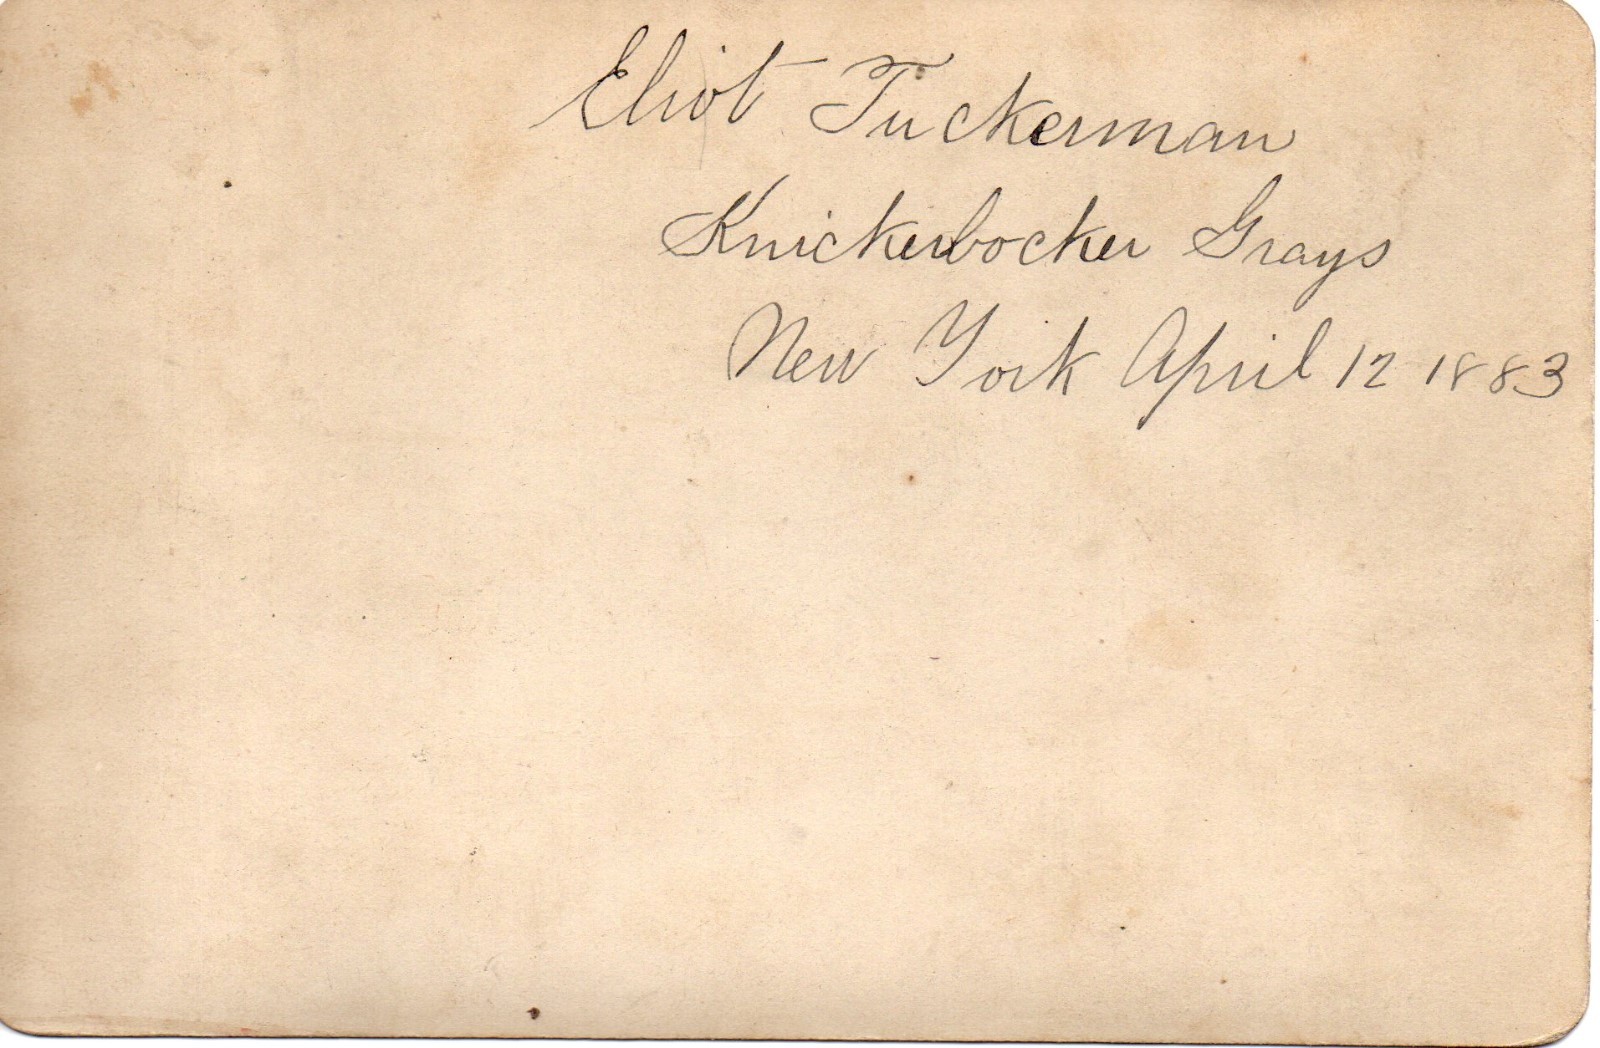 Eliot Tuckerman
Knickerbocker Grays
New York April 12 1883